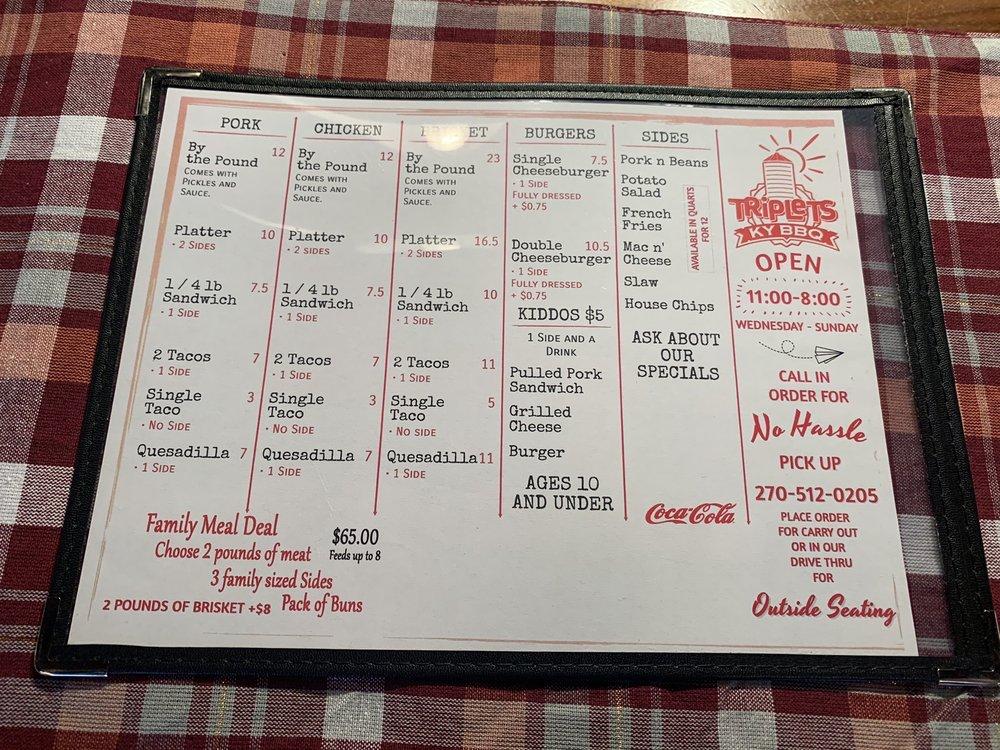 PORK
By
the Pound 12
Comes with
Pickles and
Sauce.
Platter 10
· 2 Sides
1/4 lb 7.5
Sandwich
· 1 Side
2 Tacos 7
· 1 Side
Single 3
Taco
· No Side
Quesadilla 7
· 1 Side
CHICKEN
By 12
the Pound
Comes with
Pickles and
Sauce.
Platter 10
· 2 sides
1/4 lb 7.5
Sandwich
· 1 Side
2 Tacos 7
· 1 Side
Single 3
Taco
· No Side
Quesadilla 7
· 1 Side
BRISKET
By 23
the Pound
Comes with
Pickles and
Sauce.
Platter 16.5
· 2 Sides
1/4 lb 10
Sandwich
· 1 Side
2 Tacos 11
· 1 Side
Single 5
Taco
· No Side
Quesadilla 11
· 1 Side
BURGERS
Single 7.5
Cheeseburger
· 1 Side
Fully dressed
+ $0.75
Double 10.5
Cheeseburger
· 1 Side
Fully dressed
+ $0.75
KIDDOS $5
1 Side and a
Drink
Pulled Pork
Sandwich
Grilled
Cheese
Burger
AGES 10
AND UNDER
SIDES
Pork n Beans
Potato
Salad
French
Fries
Mac n'
Cheese
Slaw
House Chips
AVAILABLE IN QUARTS
FOR 12
ASK ABOUT
OUR
SPECIALS
Coca-Cola
TRIPLETS
KY BBQ
OPEN
11:00-8:00
WEDNESDAY - SUNDAY
CALL IN
ORDER FOR
No Hassle
PICK UP
270-512-0205
PLACE ORDER
FOR CARRY OUT
OR IN OUR
DRIVE THRU
FOR
Outside Seating
Family Meal Deal $65.00
Choose 2 pounds of meat Feeds up to 8
3 family sized Sides
2 POUNDS OF BRISKET +$8 Pack of Buns